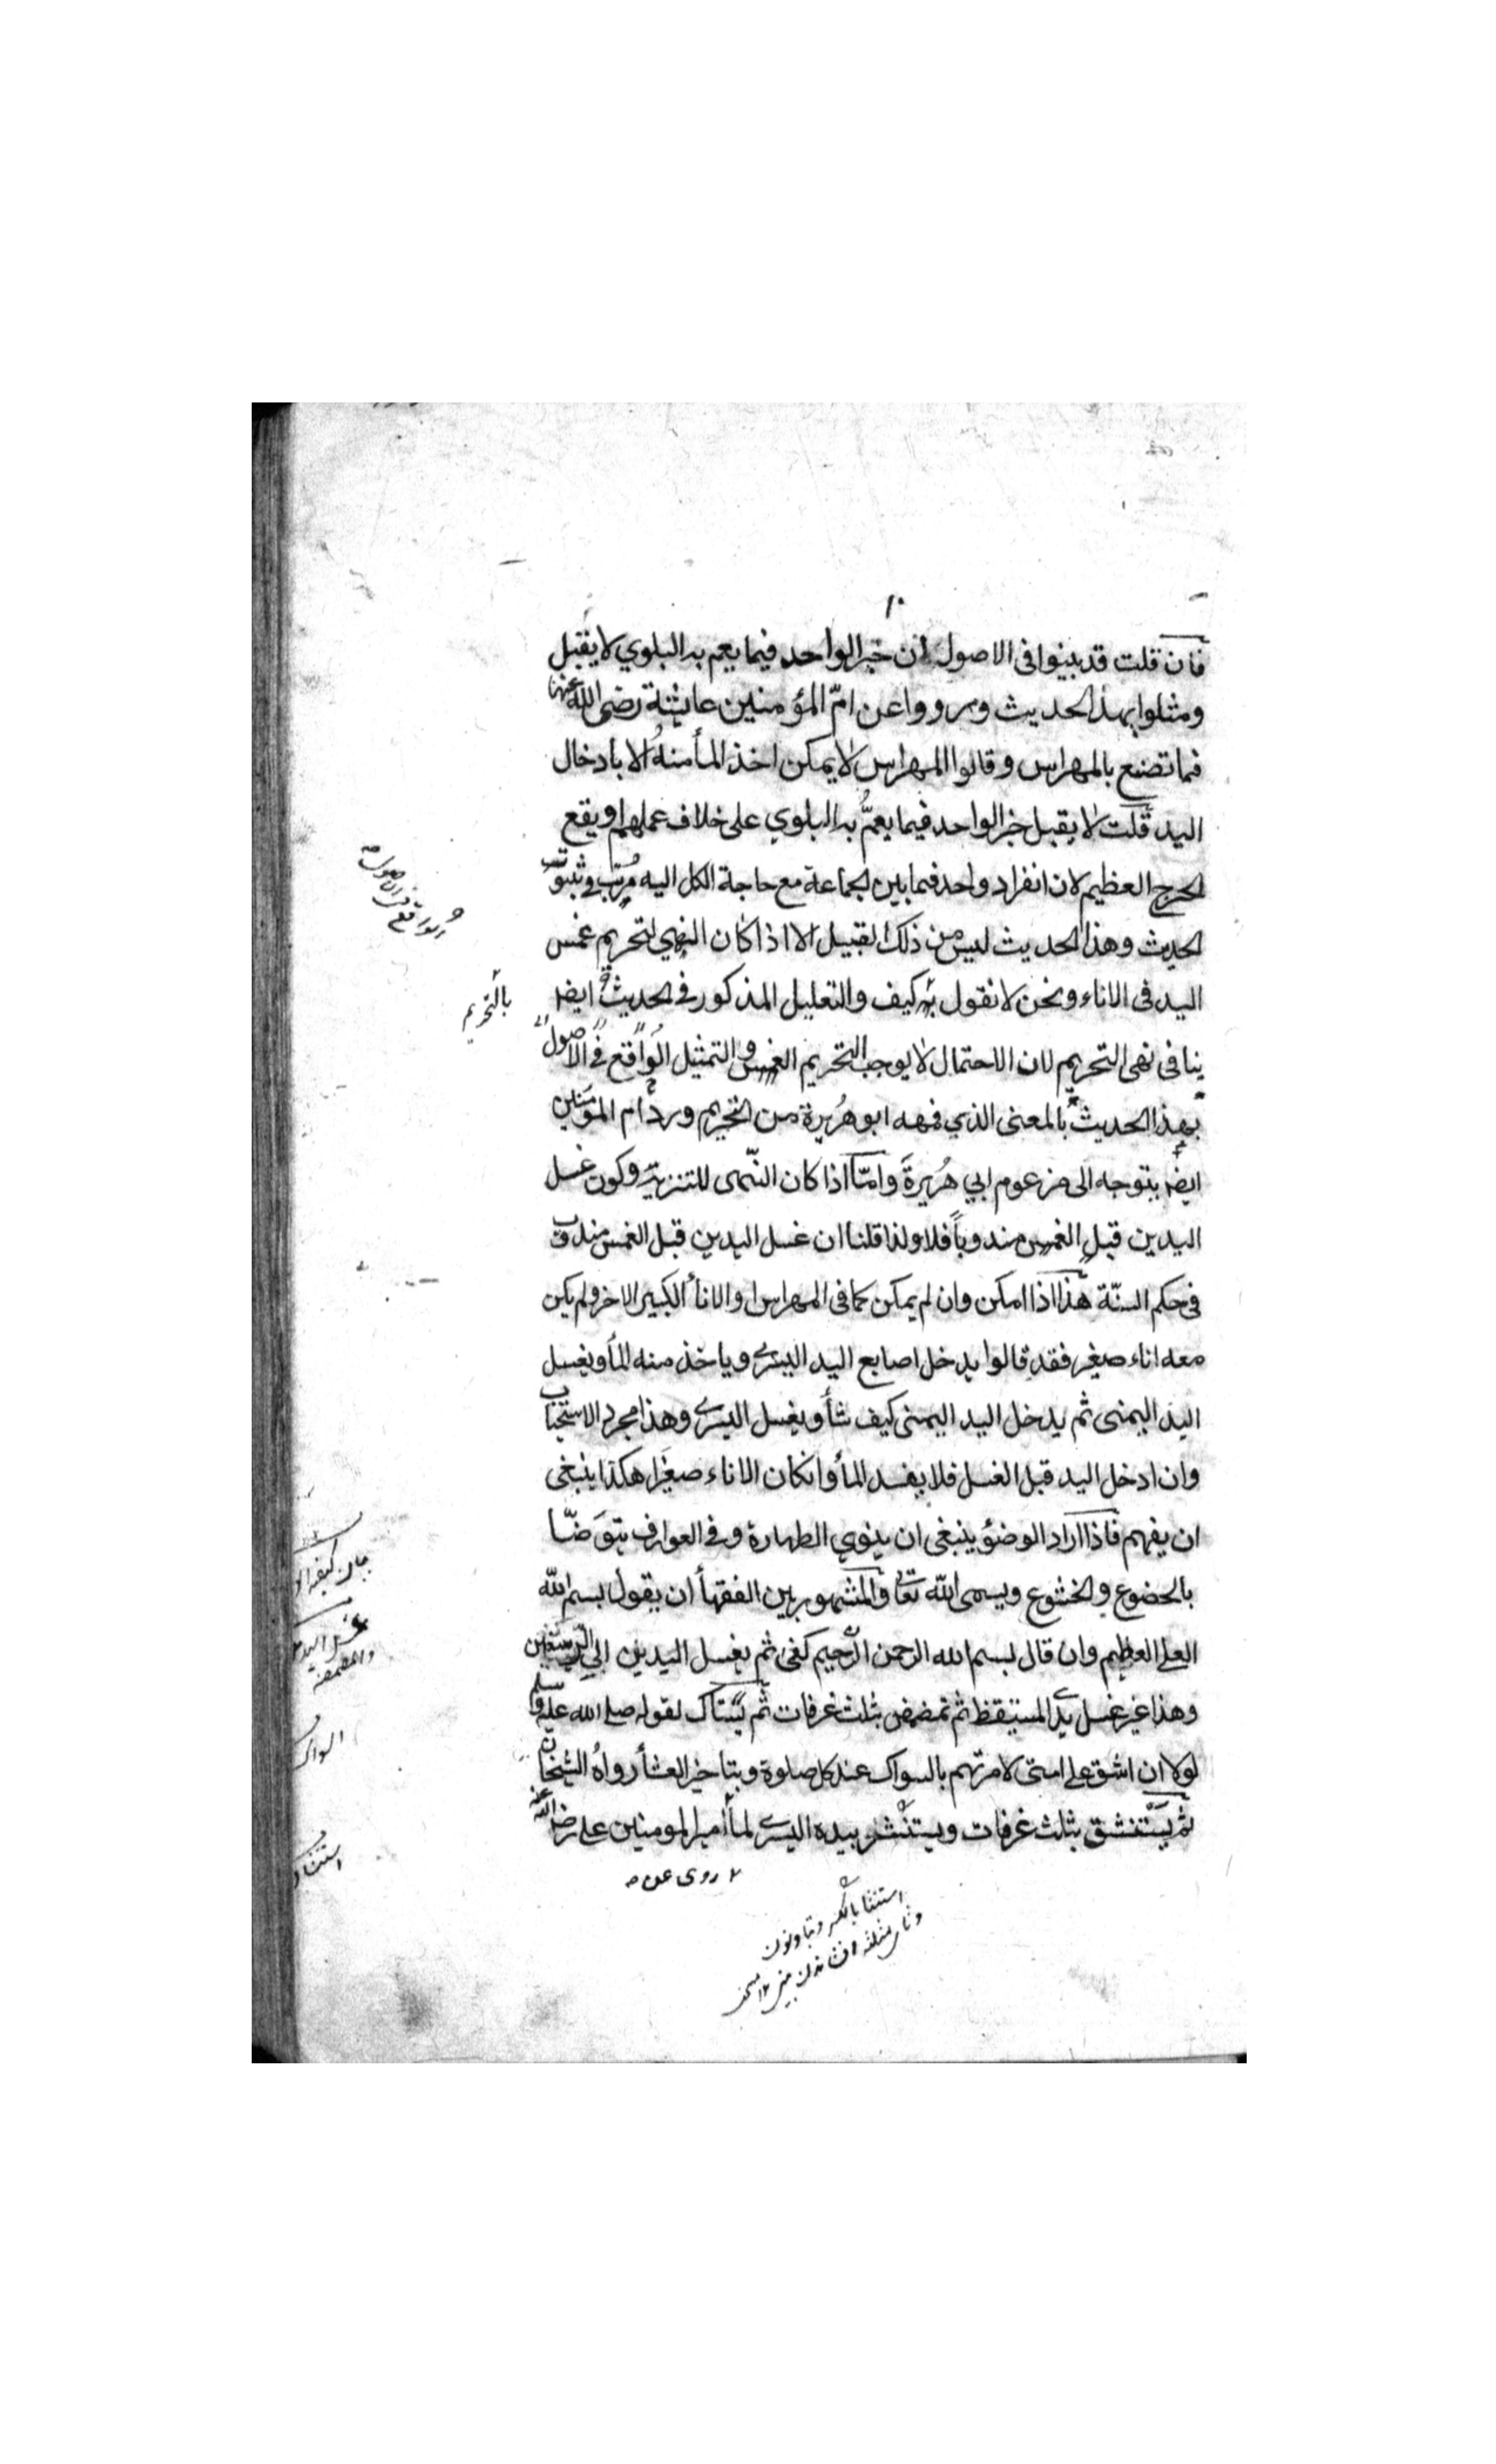 ١٠
فان قلت قد بينوا فى الاصول ان خبر الواحد فيما يعم به البلوي لا يقبل
ومثلوا بهذا الحديث ورووا عن امّ المؤمنين عايشة رضى الله عنها
فما تصنع بالمهراس وقالوا المهراس لا يمكن اخذ المأ منهُ الا بأدخال
اليد قلت لا يقبل خبر الواحد فيما يعمُّ به البلوي على خلاف عملهم او يقع
الحرج العظيم لان انفراد واحد فيما بين الجماعة مع حاجة الكل اليه
الحديث وهذا الحديث ليس من ذلك القبيل الا اذا كان النهي لتحريم غمس
اليد فى الاناء ونحن لا نقول به كيف والتعليل المذكور فى الحديث ايضا
ينافى نهى التحريم لان الاحتمال لا يوجب التحريم الغمس والتمثيل الواقع فى الاصول
بهذا الحديث بالمعنى الذي فهمه ابو هُريرة من التحريم ورد ام المؤمنين
ايضا يتوجه الى مزعوم ابي هُريرةَ وامّا اذا كان النّهى للتنزيه وكون غسل
اليدين قبل الغمس مندوباً فلا ولذا قلنا ان غسل اليدين قبل الغمس مندوب
فى حكم السنّة هذا اذا امكن وان لم يمكن كما فى المهراس او الانأ الكبير الاخر ولم يكن
معه اناء صغير فقد قالوا يدخل اصابع اليد اليسرى وياخذ منه المأ ويغسل
اليد اليمنى ثم يدخل اليد اليمنى كيف شأ ويغسل اليسرى وهذا مجرد الاستحباب
وان ادخل اليد قبل الغسل فلا يفسد المأ وانكان الاناء صغيرا هكذا ينبغى
ان يفهم فاذا اراد الوضؤ ينبغى ان ينوي الطهارة وفى العوارف يتوَضّا
بالخضوع والخشوع ويسمى الله تعالى والمشهور بين الفقهأ ان يقول بسم الله
العلى العظيم وان قال بسم الله الرحمن الرّحيم كفى ثم يغسل اليدين الى الرسغين
وهذا غير غسل يدى المستيقظ ثم تمضمض بثلث غرفات ثم يستاك لقوله صلى الله عليه وسلم
لولا ان اشق على امتى لامرتهم بالسواك عند كل صلوة وبتاخير العشأ رواهُ الشيخان
ثم يستنشق بثلث غرفات ويستنثر بيده اليسرى لما امير المومنين على رضى الله عنه
روى عن
الواقع فى الاصول
بالتحريم
غسل اليد
والمضمضه
السواك